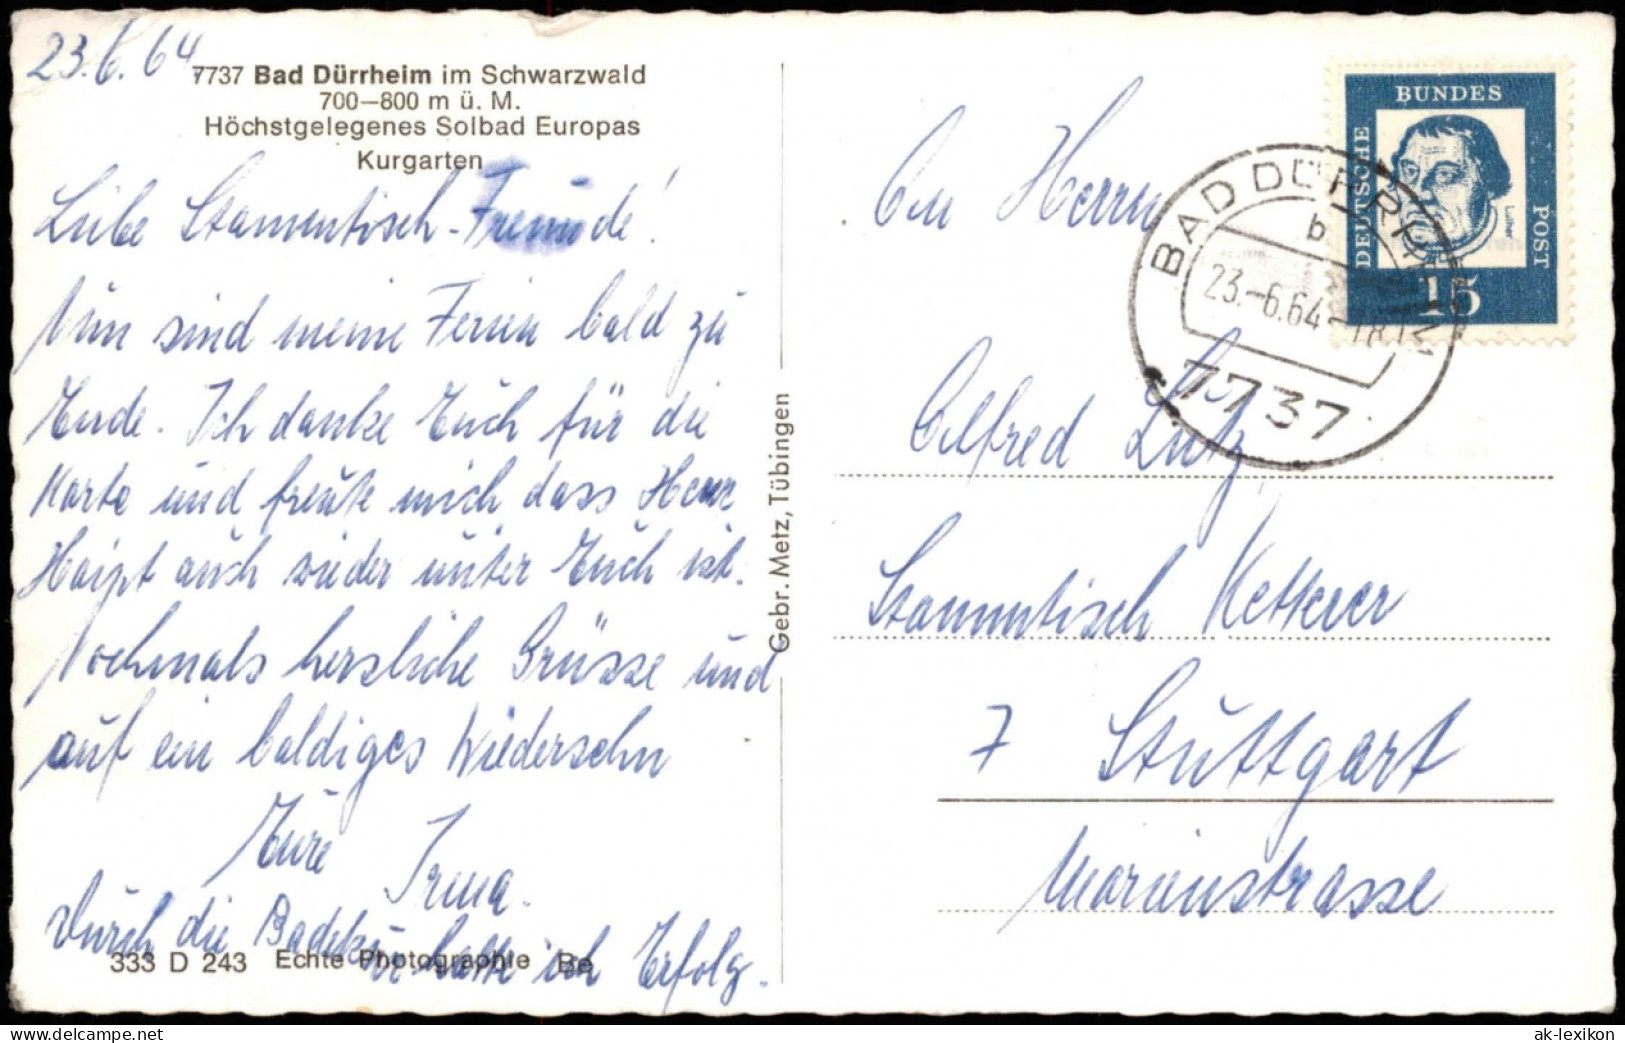 23.6.64
7737 Bad Dürrheim im Schwarzwald
700—800 m ü. M.
Höchstgelegenes Solbad Europas
Kurgarten
Liebe Stammtisch-Freunde!
Nun sind meine Ferien bald zu
Ende. Ich danke Euch für die
Karte und freute mich dass Herr
Haipt auch wieder unter Euch ist.
Nochmals herzliche Grüsse und
auf ein baldiges Wiedersehn
Eure Irma.
Durch die Badekur hatte ich Erfolg.
333 D 243 Echte Photographie Be
Gebr. Metz, Tübingen
DEUTSCHE BUNDES POST
Luther
15
BAD DÜRRHEIM
b
23.-6.64-18
7737
An Herrn
Alfred Lutz
Stammtisch Ketterer
7 Stuttgart
Marienstrasse
ak-lexikon.de
ak-lexikon